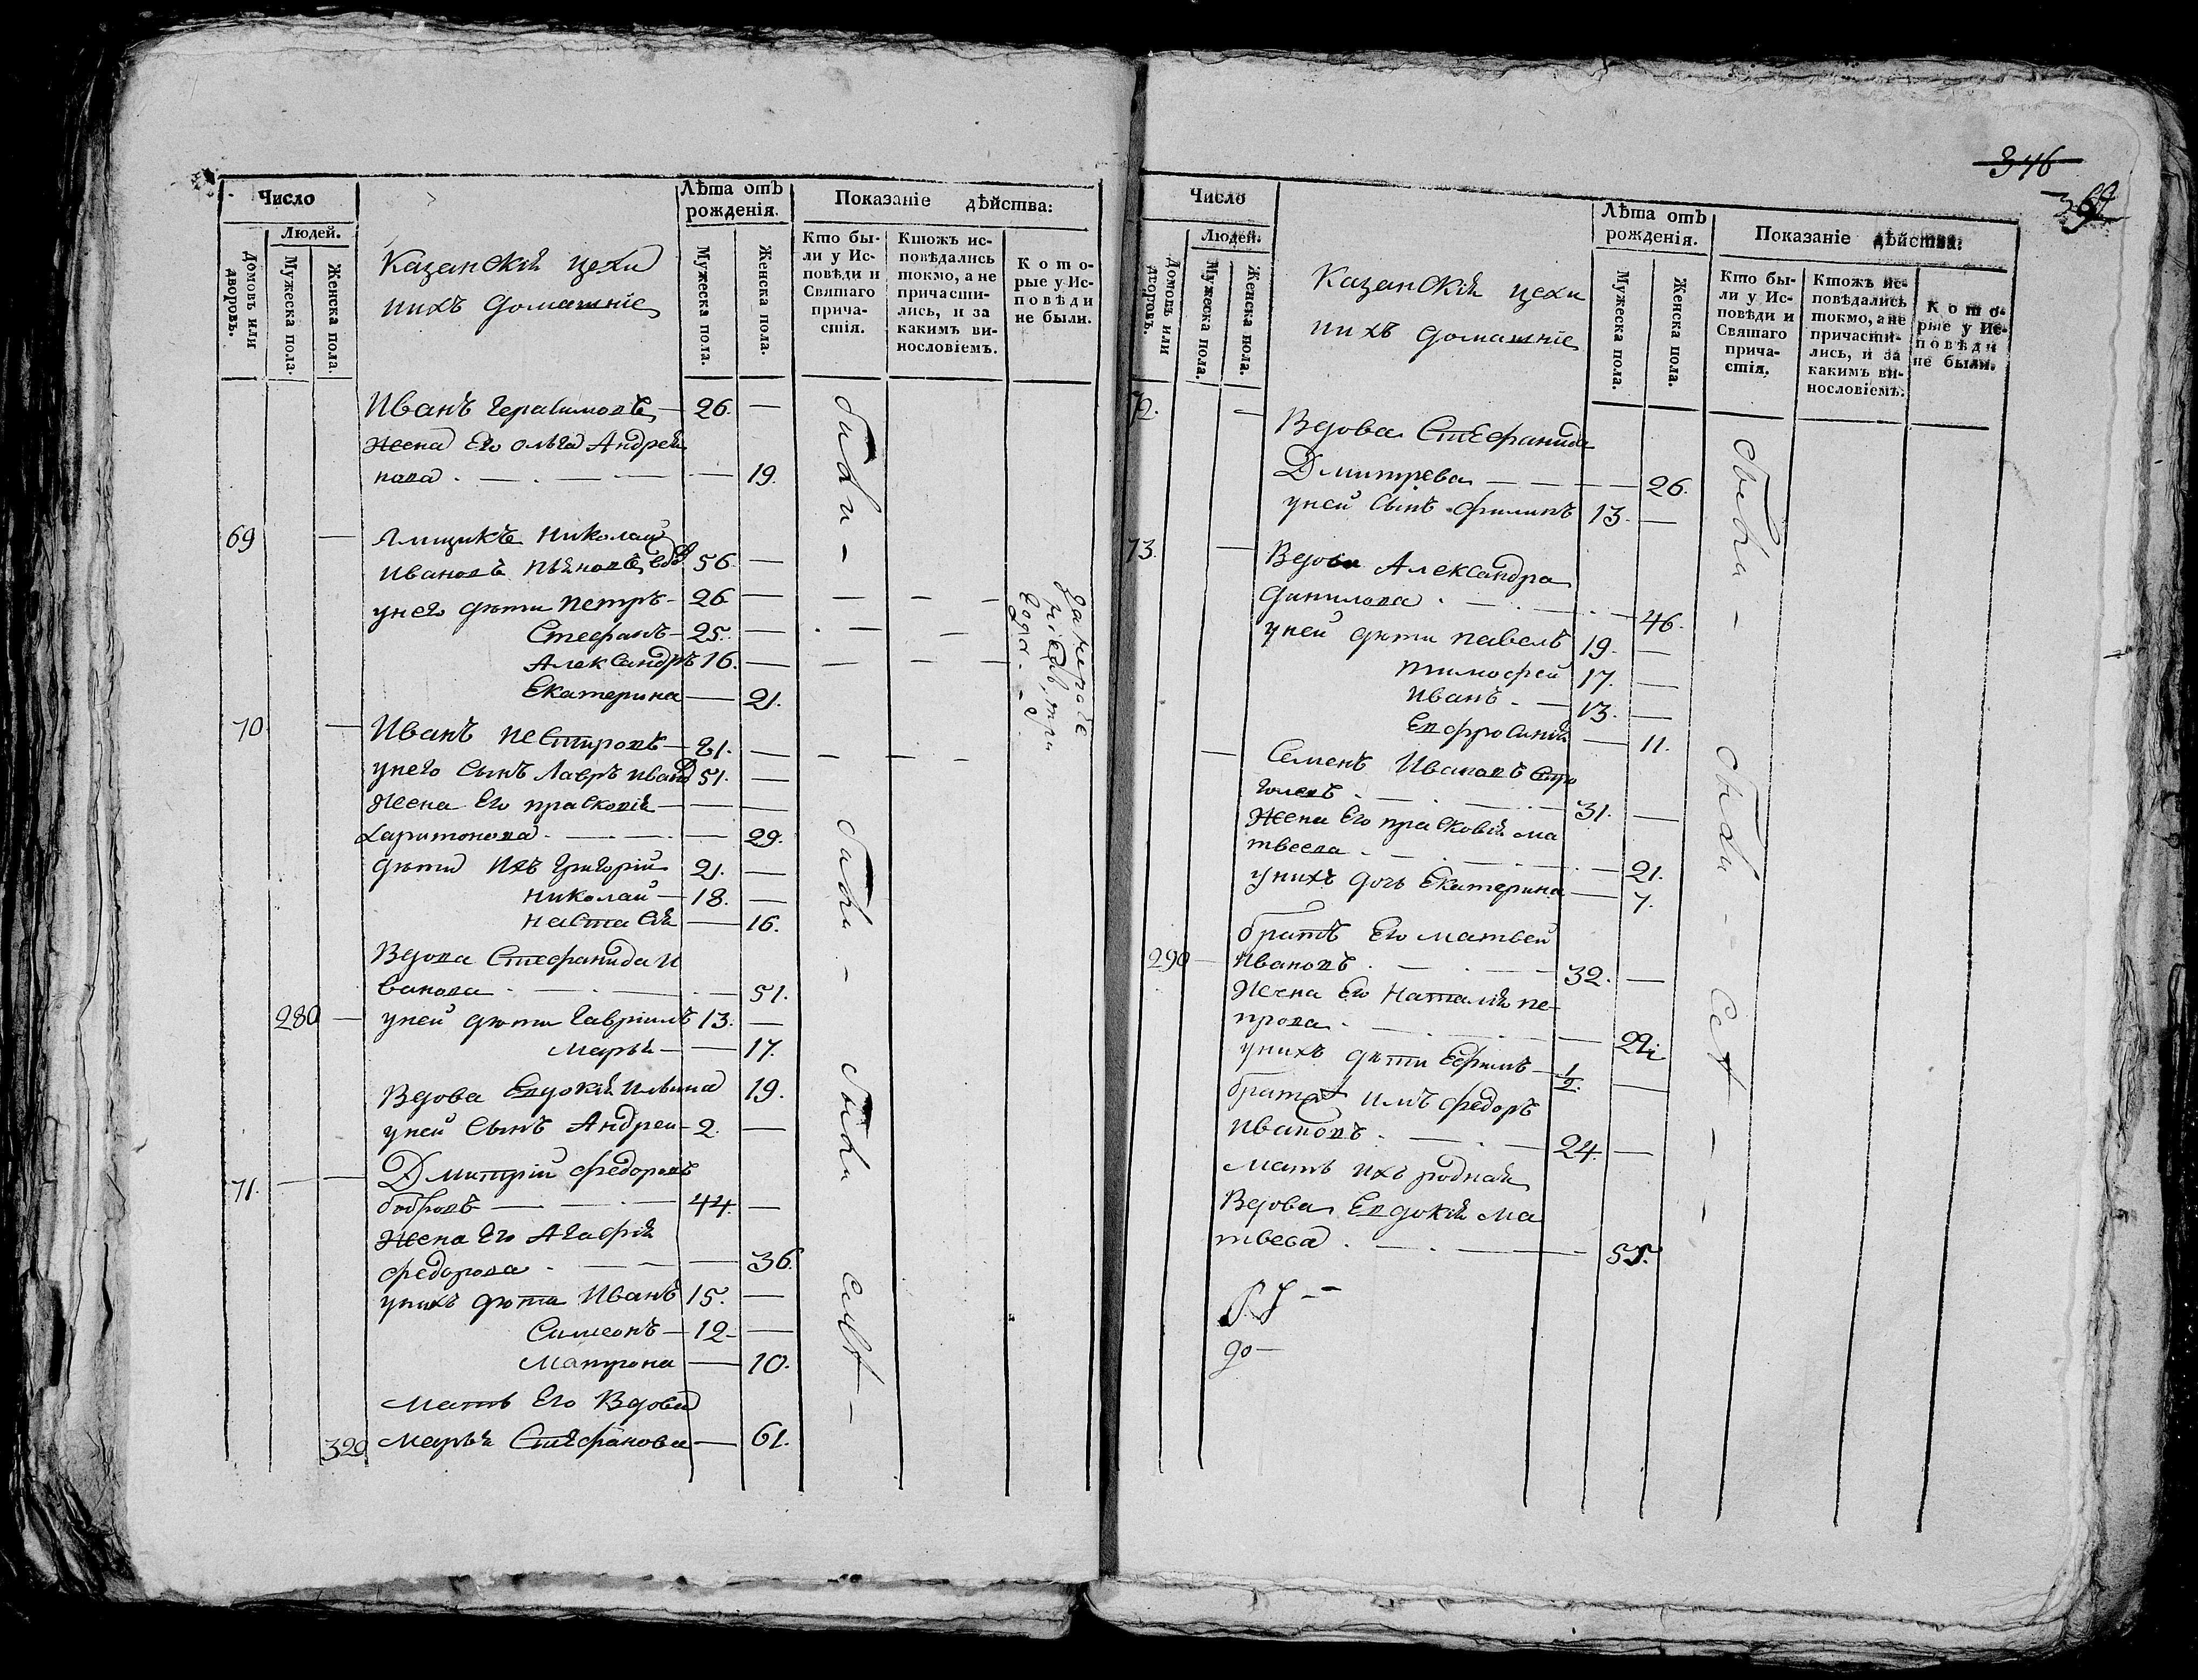 Число
Людей.
Домовъ или дворовъ.
Мужеска пола.
Женска пола.
Казанскія цехи
ихъ домашніе
Лѣта отъ
рожденія.
Мужеска пола.
Женска пола.
Показаніе дѣйства:
Кто бы-
ли у Ис-
повѣди и
Святаго
прича-
стія.
Ктожъ ис-
повѣдались
токмо, а не
причасти-
лись, и за
какимъ ви-
нословіемъ.
К о т о-
рые у Ис-
п о в ѣ д и
не были.
Иванъ Герасимовъ — 26. —
Жена Его Ольга Андрея
нова . — . — — — 19.
69 — Ямщикъ Николай
Ивановъ 56. —
унего дѣти Петръ — 26 — — — —
Стефанъ — 25. — . — —
Александръ 16. — — — —
Екатерина — 21.
70. — Иванъ Нестировъ — — — — —
унего Сынъ Лавръ 51. —
Жена Его Прасковія — — —
Харитонова . — . — . — 29.
дѣти Ихъ Григорій 21. —
Николай — 18. —
Настасія — 16.
Вдова Стефанида И
ванова . — . — . — 51.
280 — уней дѣти Гавріилъ 13. —
Марья — — 17.
Вдова Евдокія Ильина 19.
уней Сынъ Андреи — 2. —
71. — — Дмитрій Федоровъ
Бобровъ — — . — 44. —
Жена Его Агафія
Федорова . — — — 36.
унихъ дѣти Иванъ 15. —
Симеонъ — 12. —
Матрона — 10.
Мать Его Вдова
329 Марья Стефанова — 61.
были —
были —
были
годы
346
Число
Людей.
Домовъ или дворовъ.
Мужеска пола.
Женска пола.
Казанскія цехи
ихъ домашніе
Лѣта отъ
рожденія.
Мужеска пола.
Женска пола.
Показаніе дѣйства:
Кто бы-
ли у Ис-
повѣди и
Святаго
прича-
стія.
Ктожъ ис-
повѣдались
токмо, а не
причасти-
лись, и за
какимъ ви-
нословіемъ.
К о т о-
рые у Ис-
п о в ѣ д и
не были.
72. — Вдова Стефанида
Дмитрева — — — — 26.
уней Сынъ Филипъ 13. —
73. — Вдова Александра
Данилова . — . — . — 46.
уней дѣти Павелъ 19. —
Тимофеи 17. —
Иванъ . — 13. —
Евфросинія — 11.
— Семенъ Ивановъ
31. —
Жена Его Прасковія Ма
твеева . — . — . — 21.
унихъ дочь Екатерина — 7.
братъ Его Матвеи
290 — Ивановъ . — . — — 32. —
Жена Его Наталія Пе-
трова . — . — . — 22
унихъ дѣти Ефимъ — 1/2. —
братъ имъ Федоръ
Ивановъ . — . — 24. —
Мать Ихъ родная
Вдова Евдокія Ма
твева . — . — — 55.
были —
были —